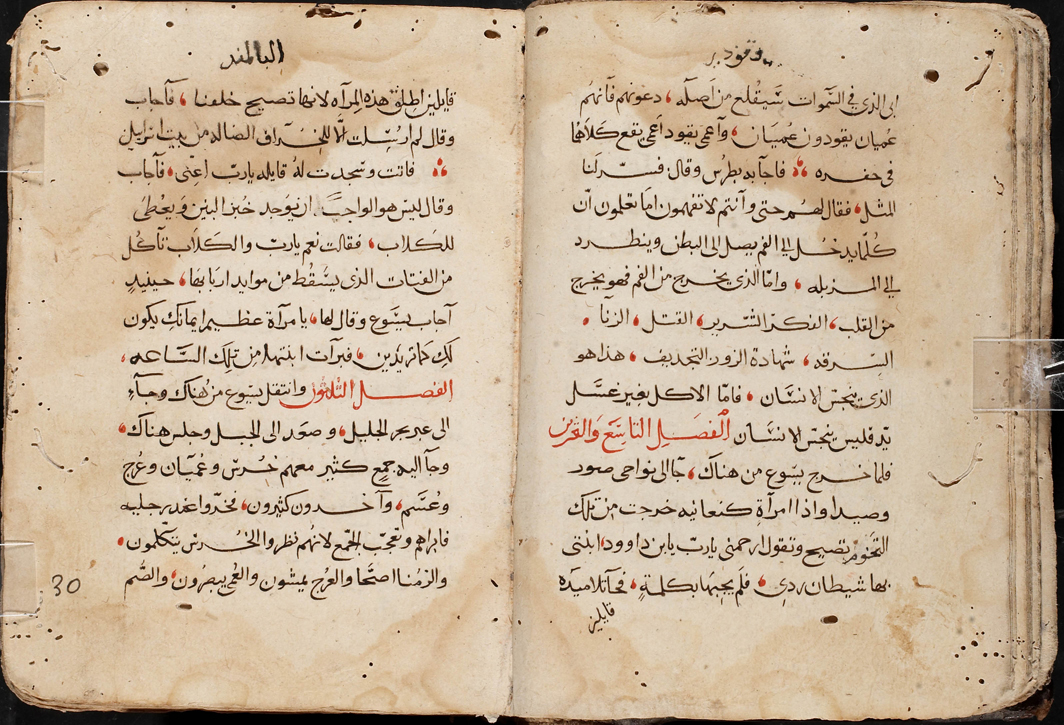 وقود
ابي الذي في السموات سيقلع من اصله، دعوهم فانهم
عميان يقودون عميان، وأعمى يقود اعمى يقع كلاهما
في حفره فاجابه بطرس وقال فسر لنا
المثل، فقال لهم حتى وأنتم لا تفهمون اما تعلمون ان
كلما يدخل الى الفم يصل الى البطن وينطرد
الى المزبله، واما الذي يخرج من الفم فهو يخرج
من القلب، الفكر الشرير، القتل، الزنا،
السرقه، شهادة الزور، التجديف، هذا هو
الذي ينجس الانسان، فاما الاكل بغير غسل
يد فليس ينجس الانسان الفصل التاسع والعشرين
فلما خرج يسوع من هناك، جا الى نواحي صور
وصيدا واذا امرأة كنعانيه خرجت من تلك
التخوم تصيح وتقول ارحمني يارب يابن داوود، ابنتي
بها شيطان ردي، فلم يجبها بكلمة، فجا تلاميذه
قايلين
البالمند
قايلين اطلق هذه المرأه لانها تصيح خلفنا، فأجاب
وقال لم ارسلت الا للخراف الضاله من بيت اسرايل
فاتت وسجدت له قايله يارب اعني، فأجاب
وقال ليس هو الواجب ان يوجد خبز البنين ويعطى
للكلاب، فقالت نعم يارب والكلاب تأكل
من الفتات الذي يسقط من موايد اربابها، حينيذ
أجاب يسوع وقال لها، يا مرأة عظيم ايمانك يكون
لك كما تريدين، فبرأت ابنتها من تلك الساعه،
الفصل الثلثون وانتقل يسوع من هناك وجاء
الى عبر بحر الجليل، وصعد الى الجبل وجلس هناك،
وجا اليه جمع كثير معهم خرس وعميان وعرج
وعسم، وأخرون كثيرون، فخروا عند رجليه
فابراهم وتعجب الجمع لانهم نظروا الخرس يتكلمون،
والزمنا اصحا والعرج يمشون والعمي يبصرون، والصم
30